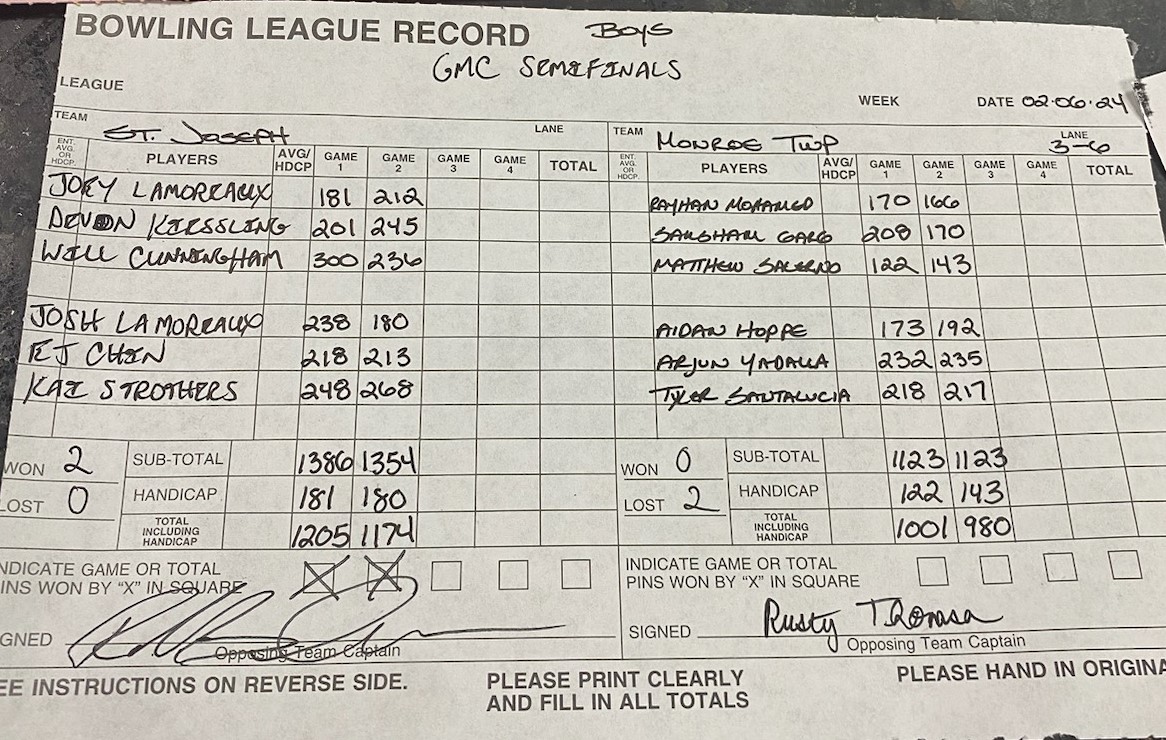 BOWLING LEAGUE RECORD BOYS
GMC SEMIFINALS
LEAGUE WEEK DATE 02·06·24
TEAM ST. JOSEPH LANE TEAM MONROE TWP LANE 3-6
ENT. AVG. OR HDCP. PLAYERS AVG/HDCP GAME 1 GAME 2 GAME 3 GAME 4 TOTAL ENT. AVG. OR HDCP. PLAYERS AVG/HDCP GAME 1 GAME 2 GAME 3 GAME 4 TOTAL
JOEY LAMOREAUX 181 212 RAYHAN MOHAMED 170 166
DEVON KIESSLING 201 245 SAKSHAM GARG 208 170
WILL CUNNINGHAM 300 236 MATTHEW SALERNO 122 143
JOSH LAMOREAUX 238 180 AIDAN HOPPE 173 192
EJ CHIN 218 213 ARJUN YADALLA 232 235
KAI STROTHERS 248 268 TYLER SANTALUCIA 218 217
WON 2 SUB-TOTAL 1386 1354 WON 0 SUB-TOTAL 1123 1123
LOST 0 HANDICAP 181 180 LOST 2 HANDICAP 122 143
TOTAL INCLUDING HANDICAP 1205 1174 TOTAL INCLUDING HANDICAP 1001 980
INDICATE GAME OR TOTAL INDICATE GAME OR TOTAL
PINS WON BY "X" IN SQUARE X X PINS WON BY "X" IN SQUARE
SIGNED SIGNED Rusty
Opposing Team Captain Opposing Team Captain
EE INSTRUCTIONS ON REVERSE SIDE. PLEASE PRINT CLEARLY PLEASE HAND IN ORIGINA
AND FILL IN ALL TOTALS